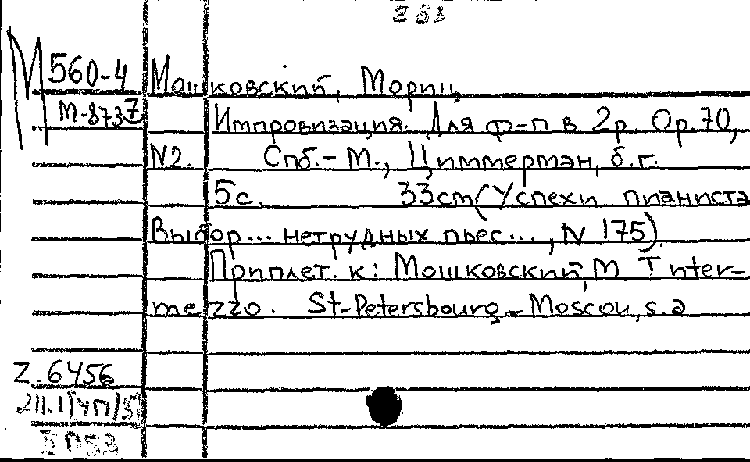 М 560-4
М-8737
Мошковский, Мориц
Импровизация. Для ф-п в 2р. Op.70,
N2. Спб.-М., Циммерман, б.г.
5с. 33cm (Успехи пианиста
Выбор... нетрудных пьес..., N 175)
Приплет. к: Мошковский, М Inter-
mezzo. St-Petersbourg - Moscou, s.a
Z.6456